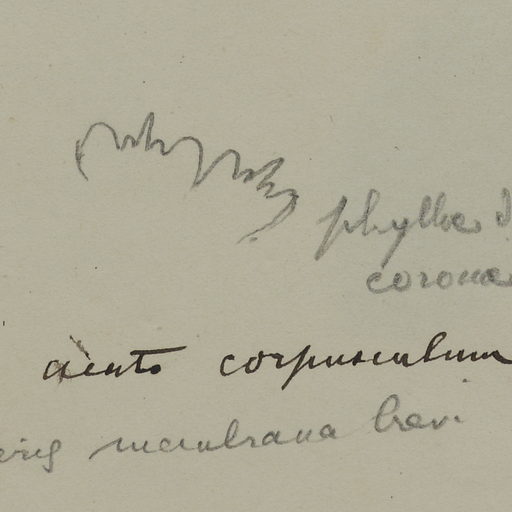 phylla
corona
acuto corpusculum
membrana brevi